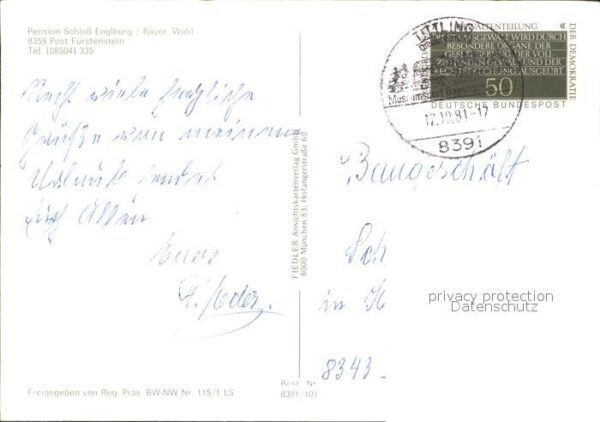 Pension Schloß Englburg / Bayer. Wald
8359 Post Fürstenstein
Tel. (08504) 335
Recht viele herzliche
Grüße von meinem
Urlaub sendet
Euch Allen
Eure
FIEDLER Ansichtskartenverlag GmbH
8000 München 83, Hofangerstraße 60
Freigegeben von Reg. Präs. BW-NW Nr. 115/1 LS
Best. Nr
8391/101
TITTLING
12.10.81-17
8391
DIE STAATSGEWALT WIRD DURCH
BESONDERE ORGANE DER
GESETZGEBUNG, DER VOLL-
ZIEHENDEN GEWALT UND DER
RECHTSPRECHUNG AUSGEÜBT.
50
DEUTSCHE BUNDESPOST
DER DEMOKRATIE
Baugeschäft
Sch
in H
8343
privacy protection
Datenschutz